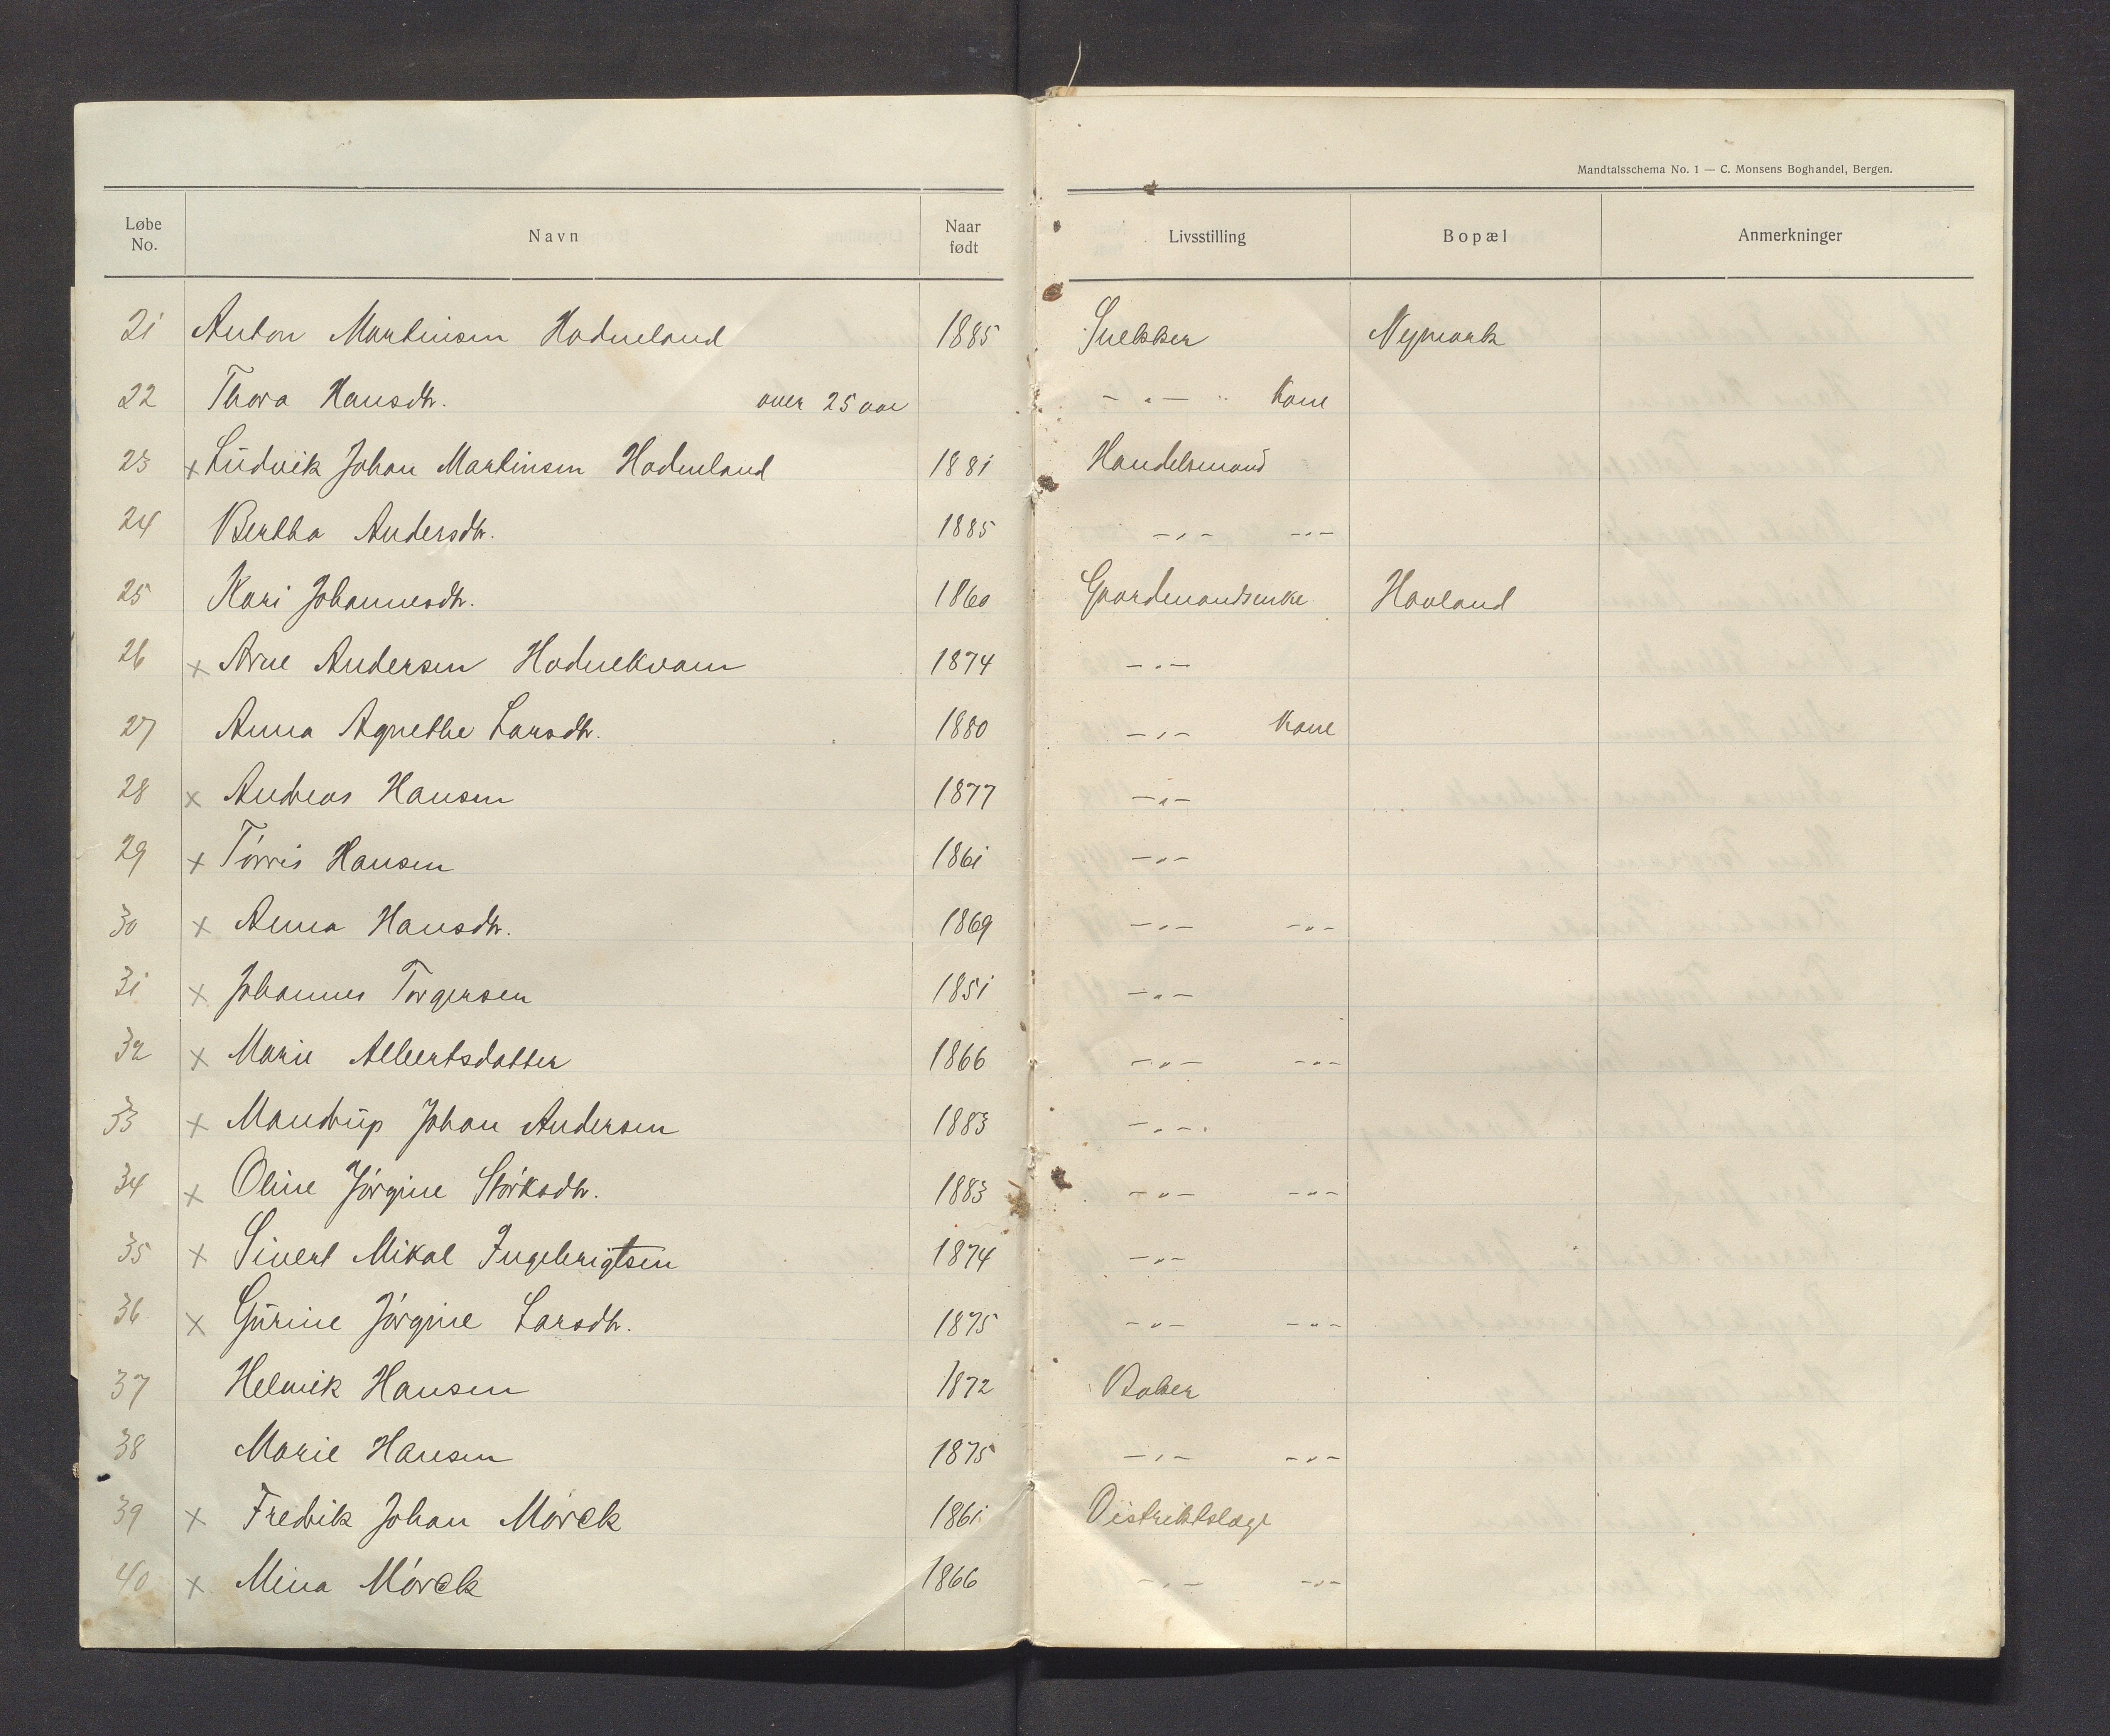 Mandtalsschema No. 1 — C. Monsens Boghandel, Bergen.
Løbe No. Navn Naar født Livsstilling Bopæl Anmerkninger
21 Anton Martinsen Hodneland 1885 Snekker Nymark
22 Thora Hansdtr. over 25 aar - " - Kone
23 x Ludvik Johan Martinsen Hodneland 1881 Handelsmand
24 Bertha Andersdtr. 1885 - " - - " -
25 Kari Johannesdtr. 1860 Gaardmandsenke Hovland
26 x Arne Andersen Hodnekvam 1874 - " -
27 Anna Agnethe Larsdtr. 1880 - " - Kone
28 x Andreas Hansen 1877 - " -
29 x Tórris Hansen 1861 - " -
30 x Anna Hansdtr. 1869 - " - - " -
31 x Johannes Torgersen 1851 - " -
32 x Marie Albertsdatter 1866 - " - - " -
33 x Mandrup Johan Andersen 1883 - " -
34 x Oline Jórgine Stórksdtr. 1883 - " - - " -
35 x Sivert Mikal Ingebrigtsen 1874 - " -
36 x Gurine Jórgine Larsdtr. 1875 - " - - " -
37 Helmik Hansen 1872 Baker
38 Marie Hansen 1875 - " - - " -
39 x Fredrik Johan Mórck 1861 Distriktslæge
40 x Mina Mórck 1866 - " - - " -